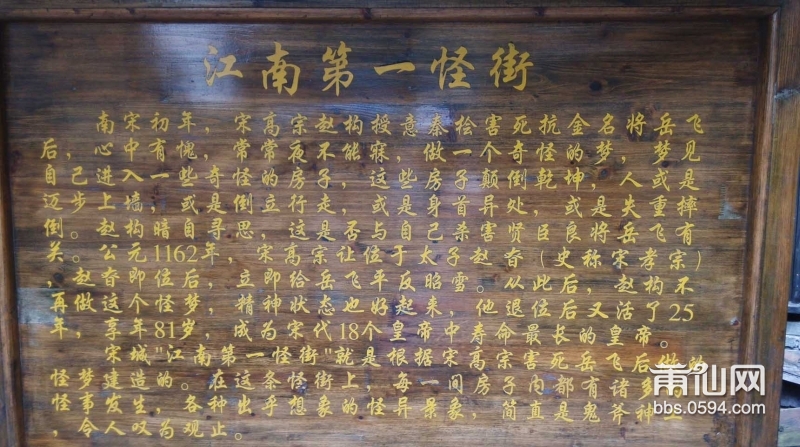 江南第一怪街
南宋初年，宋高宗赵构授意秦桧害死抗金名将岳飞
后，心中有愧，常常夜不能寐，做一个奇怪的梦，梦见
自己进入一些奇怪的房子，这些房子颠倒乾坤，人或是
迈步上墙，或是倒立行走，或是身首异处，或是失重摔
倒。赵构暗自寻思，这是否与自己杀害贤臣良将岳飞有
关。公元1162年，宋高宗让位于太子赵昚（史称宋孝宗）
，赵昚即位后，立即给岳飞平反昭雪。从此后，赵构不
再做这个怪梦，精神状态也好起来，他退位后又活了25
年，享年81岁，成为宋代18个皇帝中寿命最长的皇帝。
宋城"江南第一怪街"就是根据宋高宗害死岳飞后做的
怪梦建造的。在这条怪街上，每一间房子内部有诸多的
怪事发生，各种出乎想象的怪异景象，简直是鬼斧神工
，令人叹为观止。
莆仙网
bbs.0594.com